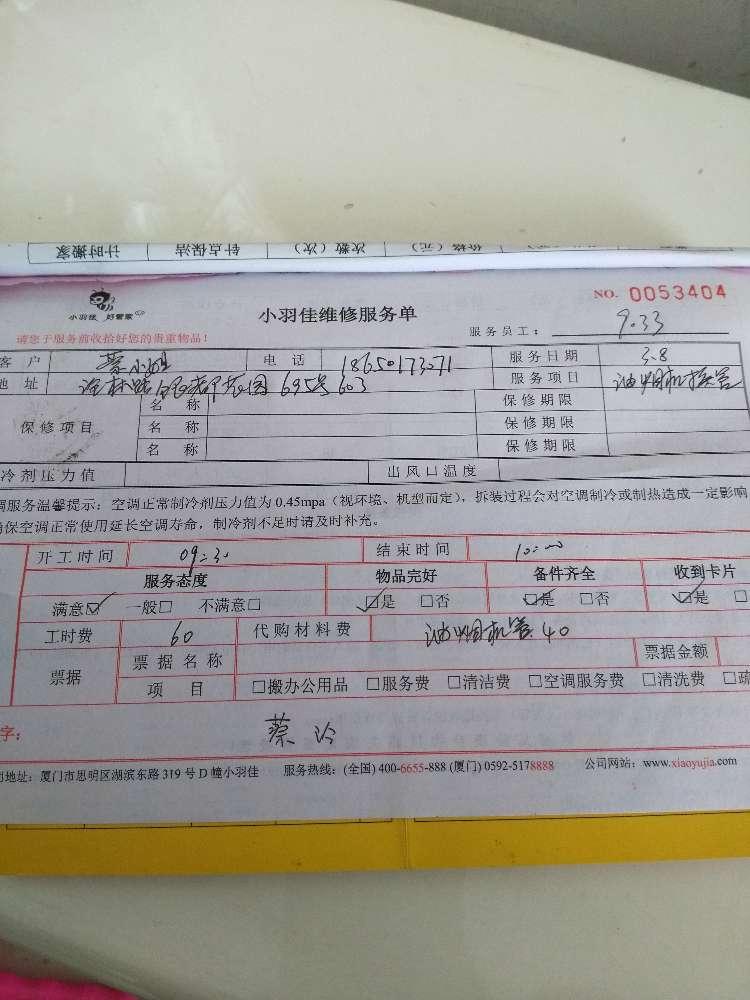 计时搬家 针点保洁 次数（次） 价格（元）
小羽佳 好管家
小羽佳维修服务单
NO. 0053404
请您于服务前收拾好您的贵重物品！
服务员工： 933
客 户 蔡小姐 电 话 18650173071 服务日期 3.8
地 址 695号603 服务项目 油烟机换管
保修项目 名 称 保修期限
名 称 保修期限
名 称 保修期限
冷剂压力值 出风口温度
调服务温馨提示：空调正常制冷剂压力值为 0.45mpa（视环境、机型而定），拆装过程会对空调制冷或制热造成一定影响
确保空调正常使用延长空调寿命，制冷剂不足时请及时补充。
开工时间 09:30 结束时间 10:00
服务态度 物品完好 备件齐全 收到卡片
满意☑ 一般□ 不满意□ ☑是 □否 ☑是 □否 ☑是 □
工时费 60 代购材料费 油烟机管 40
票据 票据名称 票据金额
项 目 □搬办公用品 □服务费 □清洁费 □空调服务费 □清洗费 □疏
字： 蔡
司地址：厦门市思明区湖滨东路 319 号 D 幢小羽佳 服务热线：(全国) 400-6655-888 (厦门) 0592-5178888 公司网站：www.xiaoyujia.com